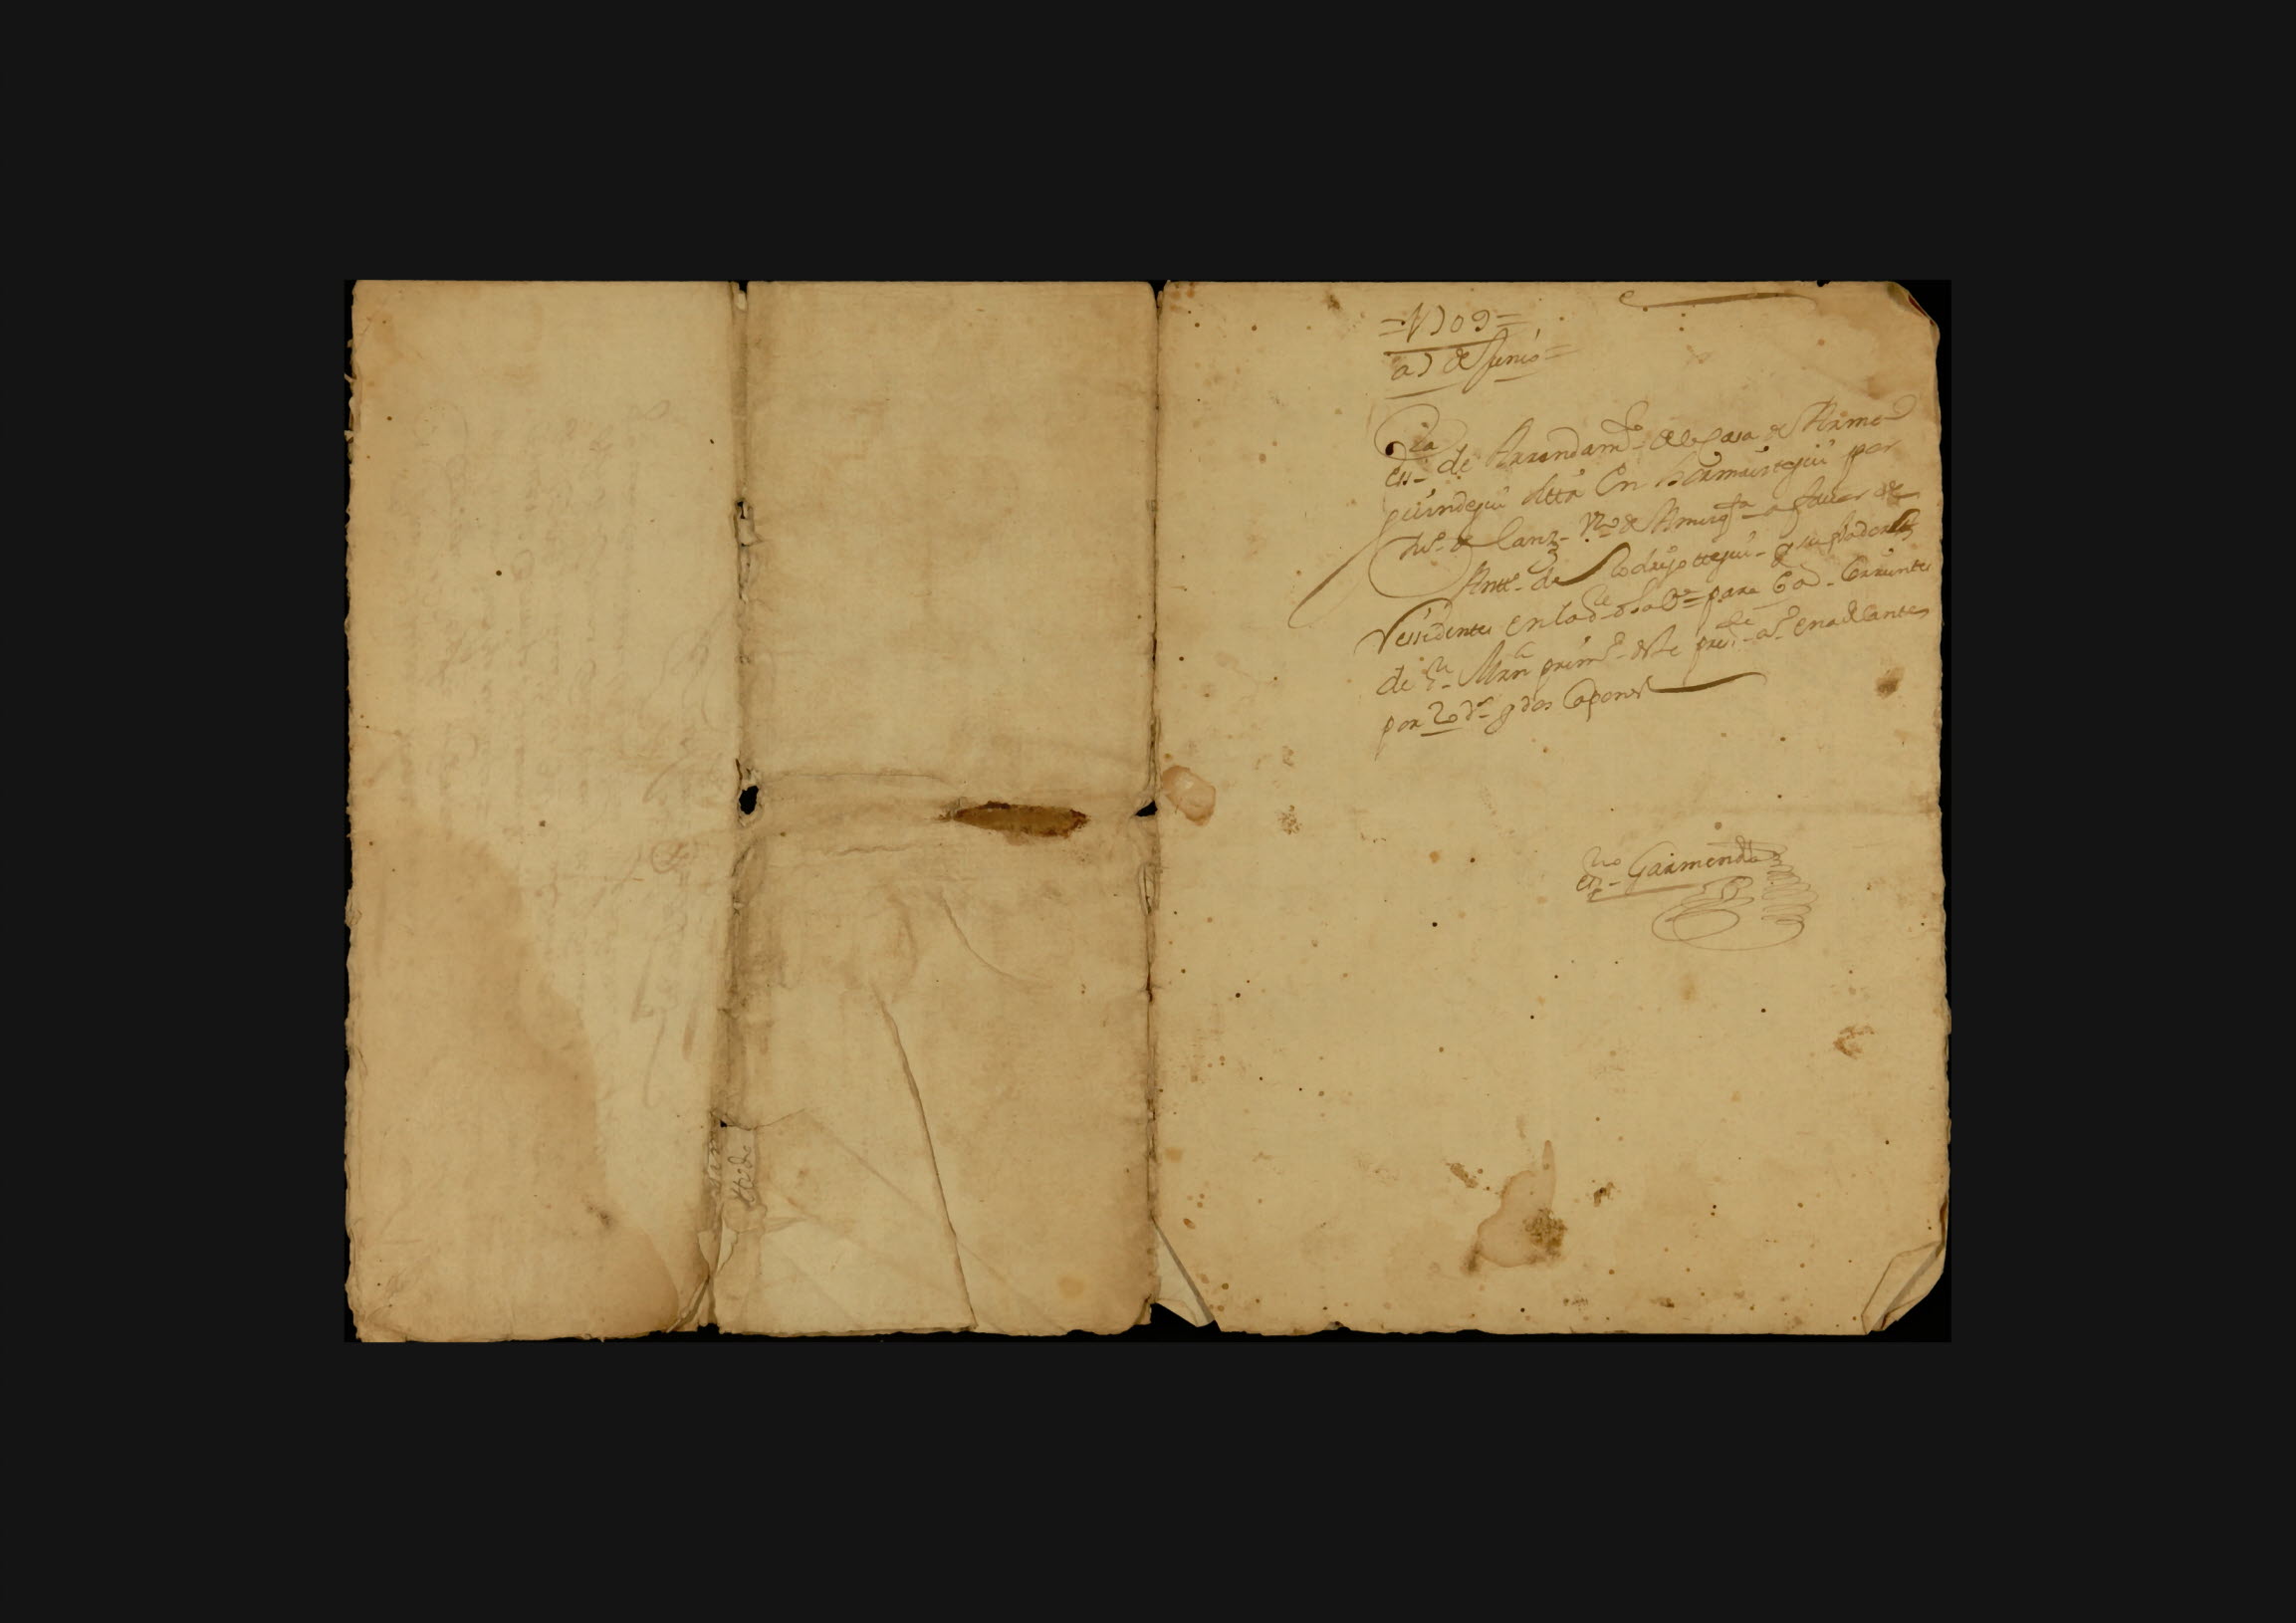 =1709=
a 7 de Junio=
Essra de Arrendamto de la Casa de Arme
guindegui sitta En hormaiztegui por
Juo de Lanz vno de Amezqta a favor de
Antto de Rodrigottegui y su
Ressidentes en la para 6 as Corrientes
de Sn Mrn primo deste preste ao en adelantes
por 20 ds y dos Capones
essno Garmendia